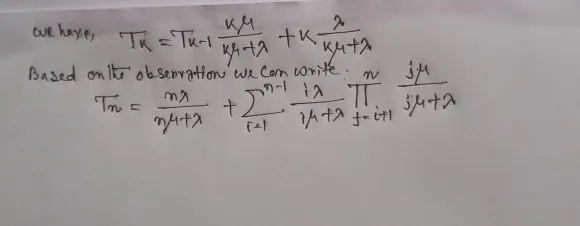 we have, Tk = Tk-1 kμ/(kμ+λ) + k λ/(kμ+λ)
Based on the observation we can write:
Tn = nλ/(nμ+λ) + ∑_{i=1}^{n-1} iλ/(iμ+λ) ∏_{j=i+1}^{n} jμ/(jμ+λ)